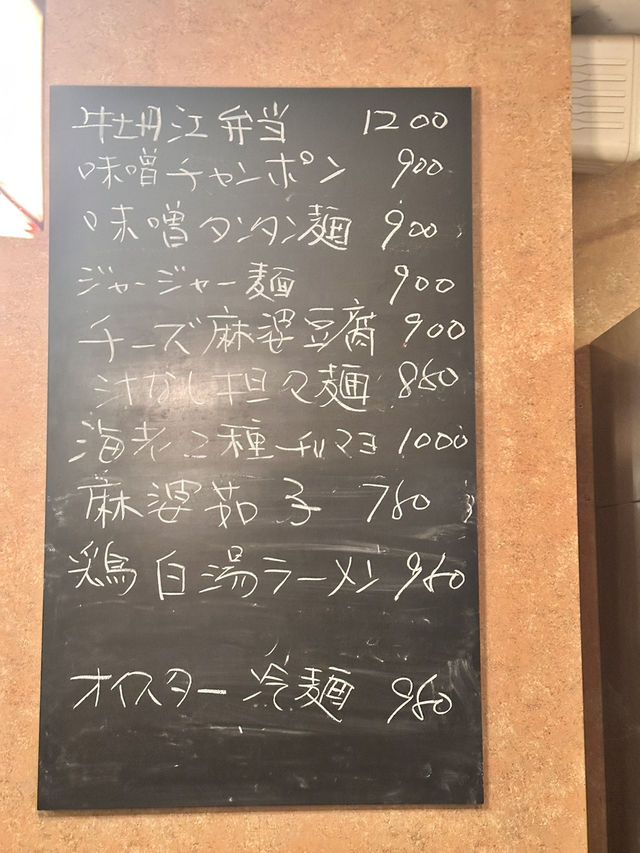 牡丹江弁当 1200
味噌チャンポン 900
味噌タンタン麺 900
ジャージャー麺 900
チーズ麻婆豆腐 900
汁なし担々麺 850
海老二種チリマヨ 1000
麻婆茄子 780
鶏白湯ラーメン 950
オイスター冷麺 980